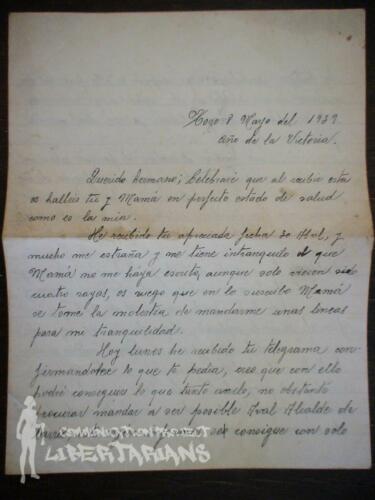 8 Mayo del 1939
Año de la Victoria.
Querido hermano; Celebraré que al recibir esta
os halleis tu y Mamá en perfecto estado de salud
como es la mia.
He recibido tu apreciada fecha 30 Abl, y
mucho me estraña y me tiene intranquilo el que
Mamá no me haya escrito, aunque solo
cuatro rayas, os ruego que en lo Mamá
se tome la molestia de mandarme unas lineas
para mi tranquilidad.
Hoy lunes he recibido tu telegrama con-
firmandome lo que te pedia, creo que con ello
podré conseguir lo que tanto anelo, no obstante
procurar mandar á ser posible Aval Alcalde de
consigue con solo
COMMUNICATION PROJECT
LIBERTARIANS